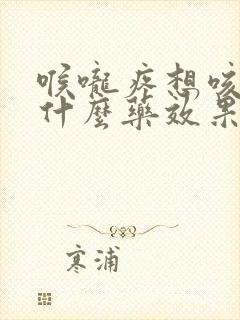 喉嚨疼想咳
什麼藥效果
寒浦